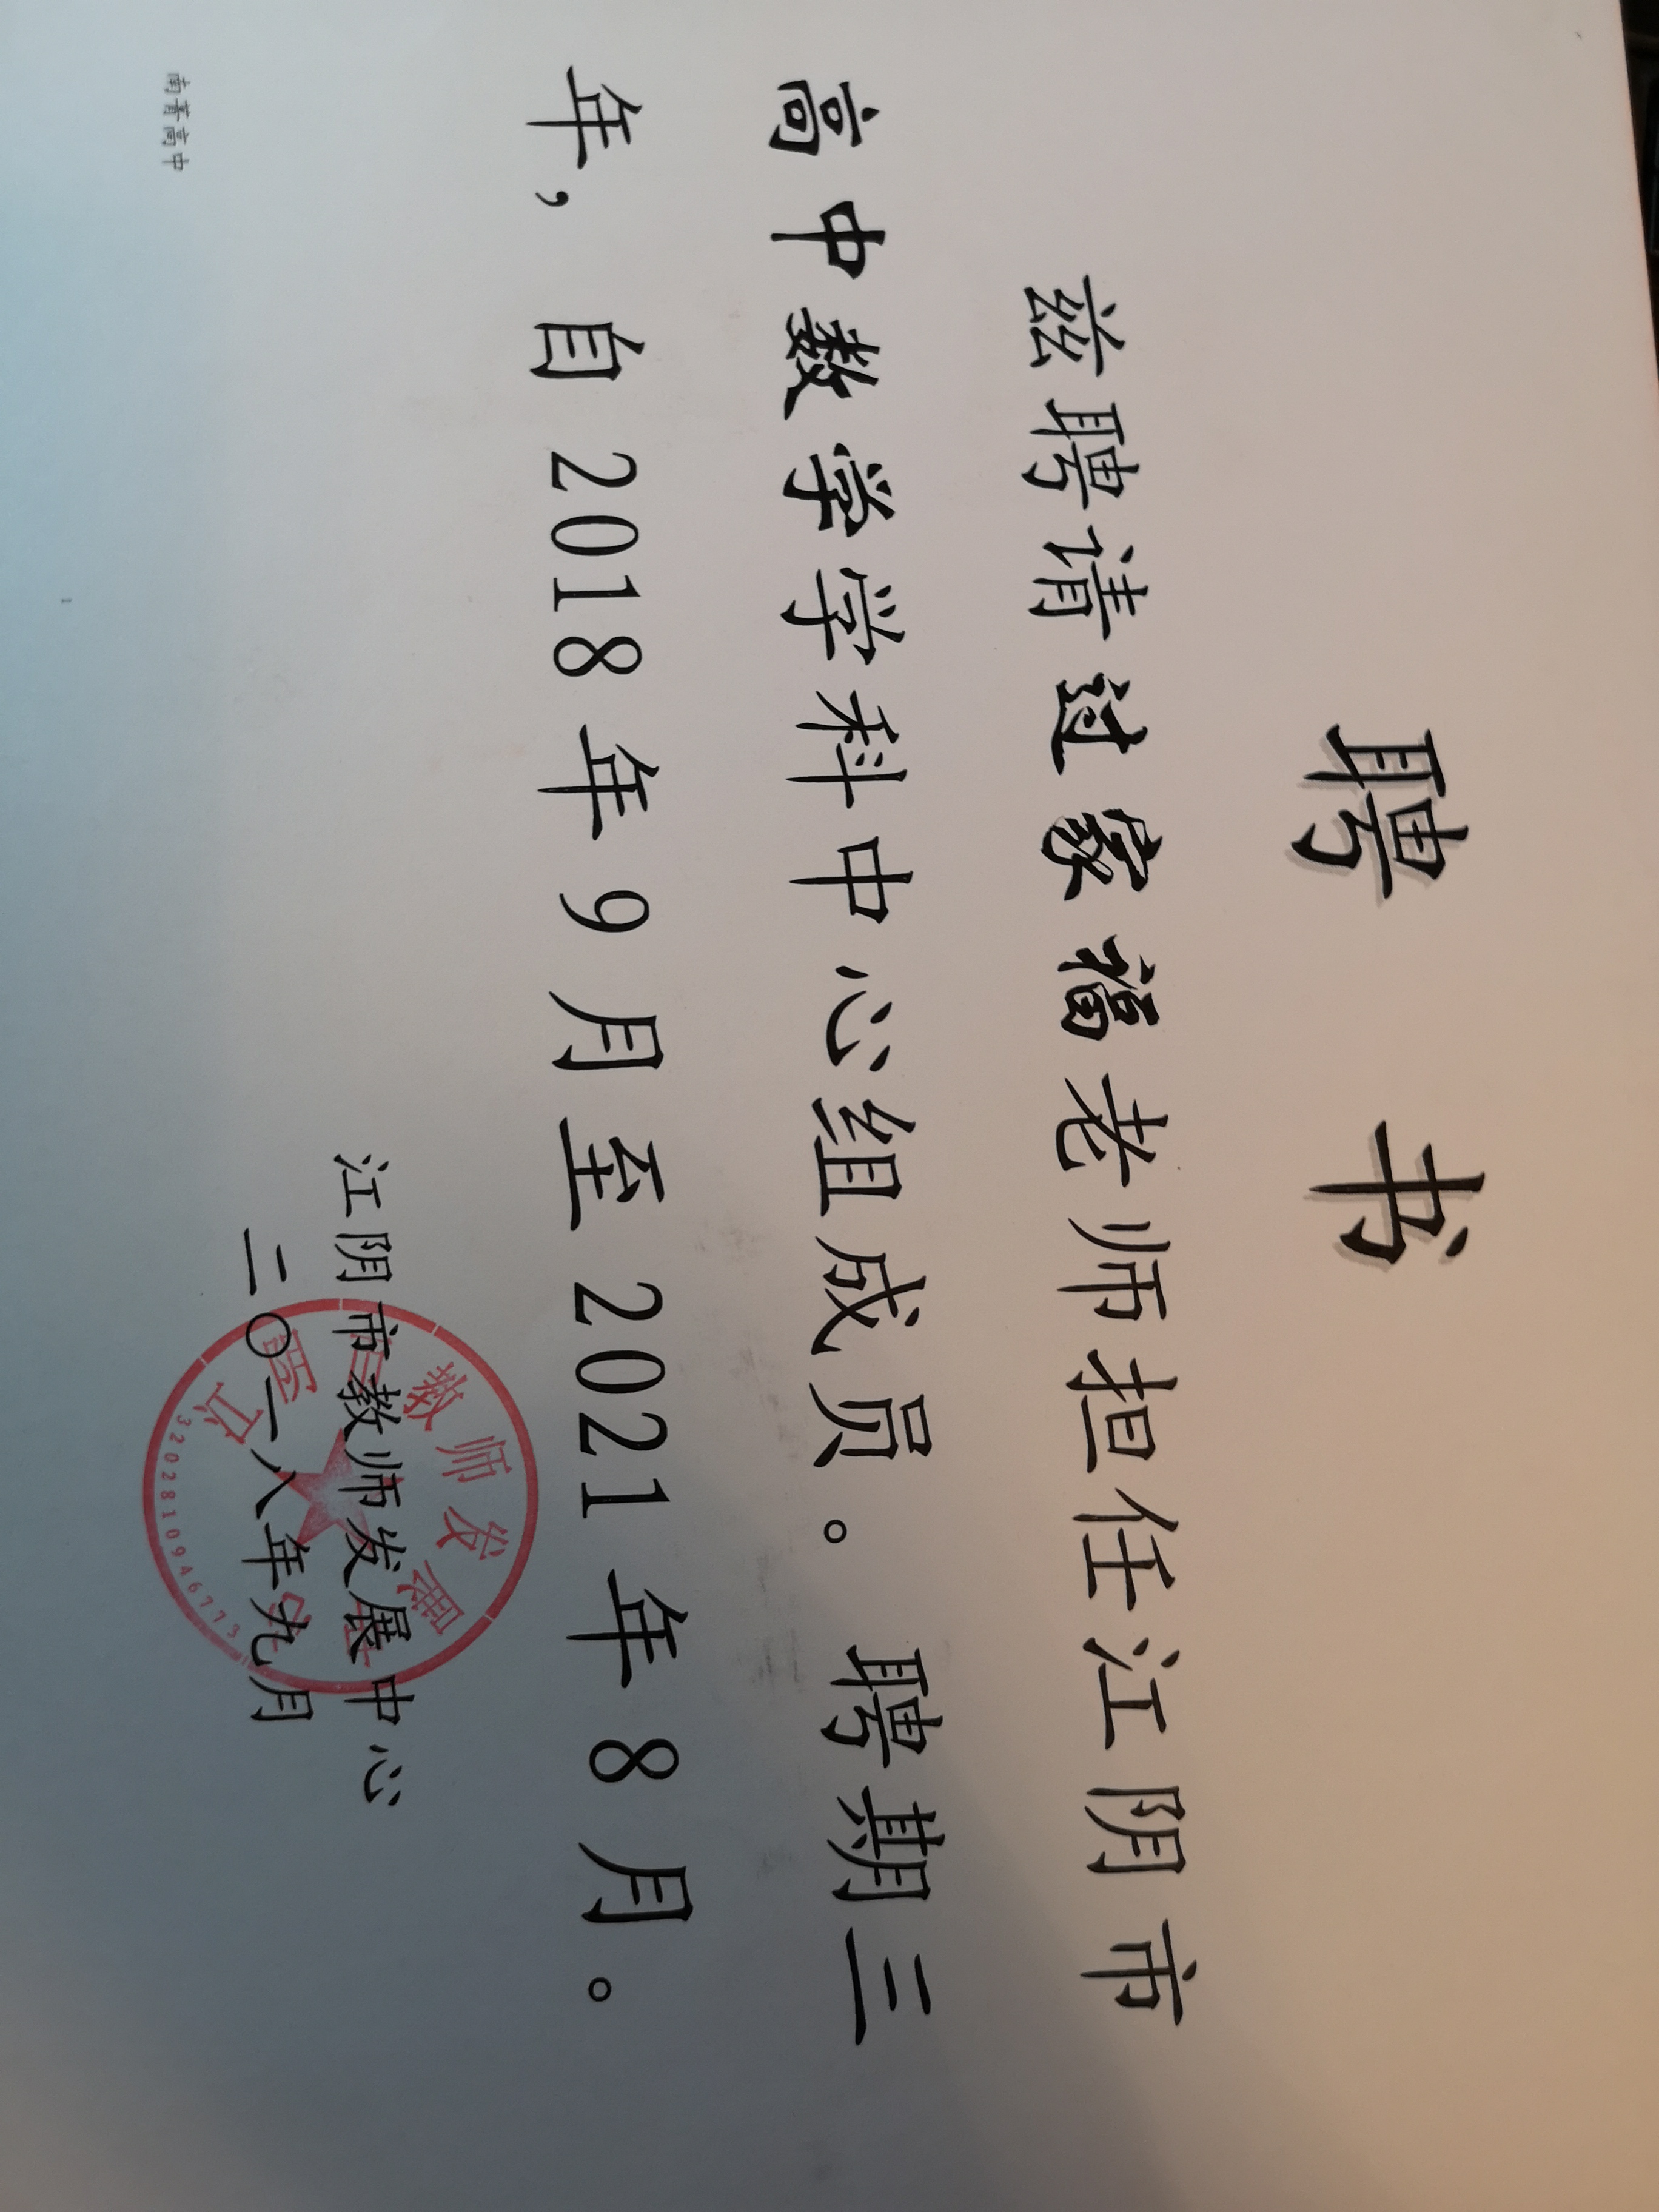 聘 书
兹聘请过家福老师担任江阴市
高中数学学科中心组成员。 聘期三
年，自 2018 年 9 月至 2021 年 8 月。
江阴市教师发展中心
二〇一八年九月
江阴市教师发展中心
3202810946773
南菁高中